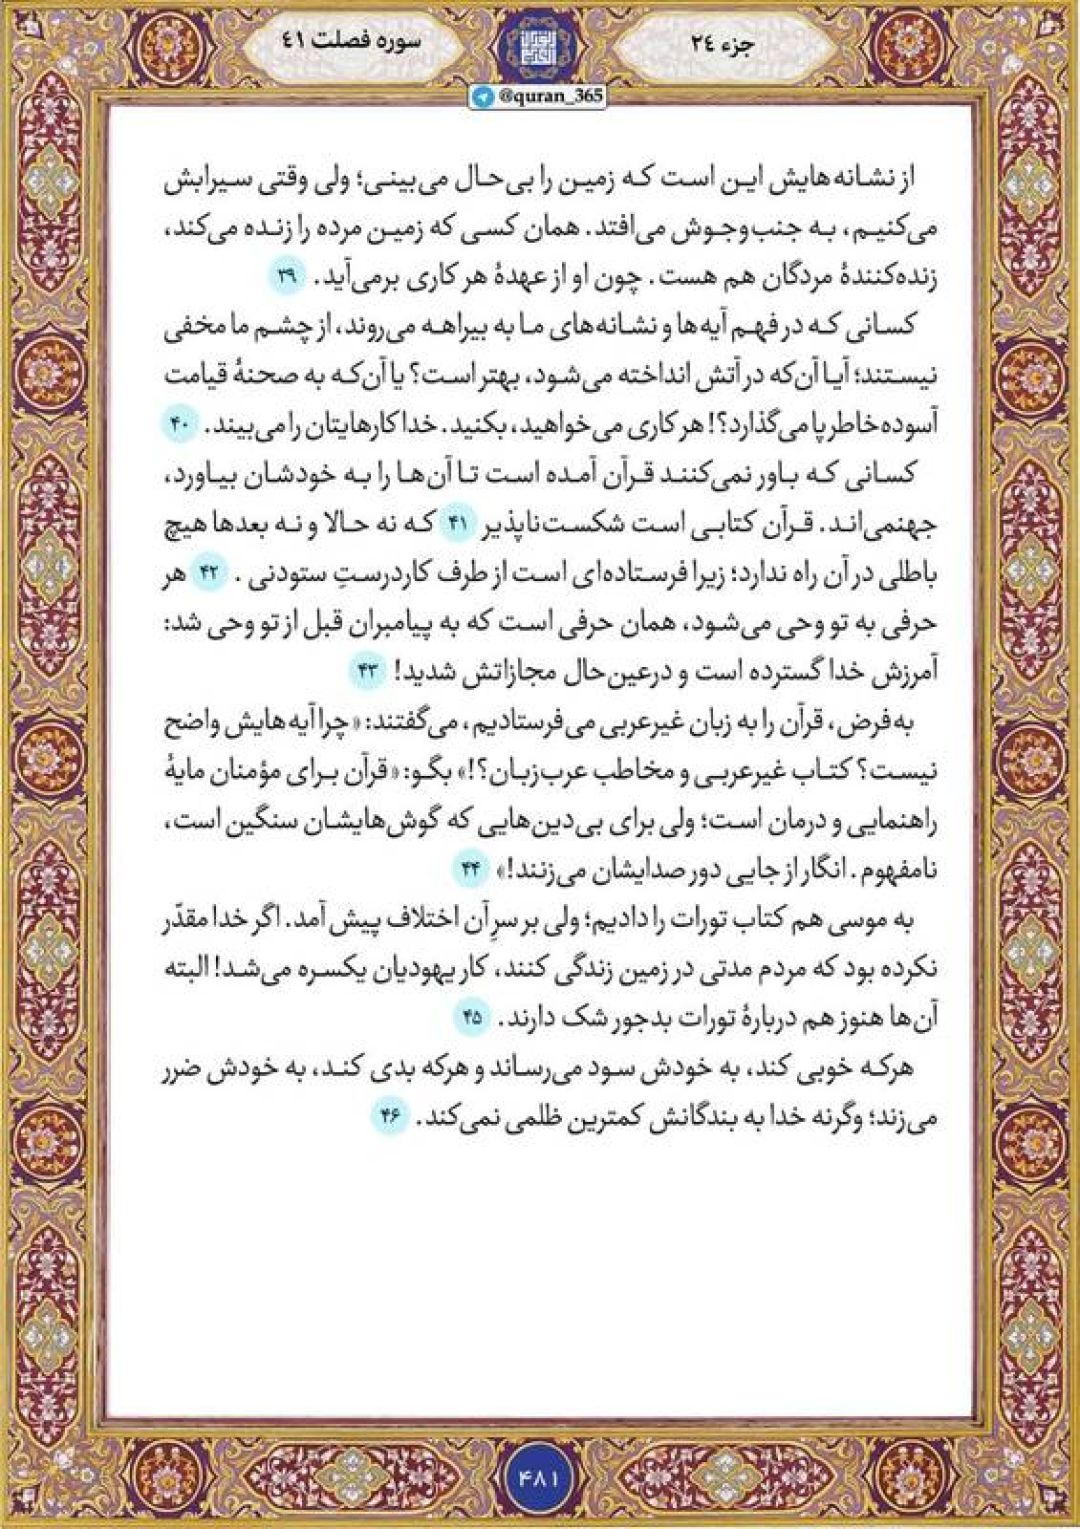 جزء ۲٤
سوره فصلت ٤١
@quran_365
از نشانه‌هایش این است که زمین را بی‌حال می‌بینی؛ ولی وقتی سیرابش
می‌کنیم، به جنب‌وجوش می‌افتد. همان کسی که زمین مرده را زنده می‌کند،
زنده‌کنندهٔ مردگان هم هست. چون او از عهدهٔ هر کاری برمی‌آید. ۳۹
کسانی که در فهم آیه‌ها و نشانه‌های ما به بیراهه می‌روند، از چشم ما مخفی
نیستند؛ آیا آن‌که در آتش انداخته می‌شود، بهتر است؟ یا آن‌که به صحنهٔ قیامت
آسوده‌خاطر پا می‌گذارد؟! هر کاری می‌خواهید، بکنید. خدا کارهایتان را می‌بیند. ۴۰
کسانی که باور نمی‌کنند قرآن آمده است تا آن‌ها را به خودشان بیاورد،
جهنمی‌اند. قرآن کتابی است شکست‌ناپذیر ۴۱ که نه حالا و نه بعدها هیچ
باطلی در آن راه ندارد؛ زیرا فرستاده‌ای است از طرف کاردرستِ ستودنی . ۴۲ هر
حرفی به تو وحی می‌شود، همان حرفی است که به پیامبران قبل از تو وحی شد:
آمرزش خدا گسترده است و درعین‌حال مجازاتش شدید! ۴۳
به‌فرض، قرآن را به زبان غیرعربی می‌فرستادیم، می‌گفتند: «چرا آیه‌هایش واضح
نیست؟ کتاب غیرعربی و مخاطب عرب‌زبان؟!» بگو: «قرآن برای مؤمنان مایهٔ
راهنمایی و درمان است؛ ولی برای بی‌دین‌هایی که گوش‌هایشان سنگین است،
نامفهوم. انگار از جایی دور صدایشان می‌زنند!» ۴۴
به موسی هم کتاب تورات را دادیم؛ ولی بر سرِ آن اختلاف پیش آمد. اگر خدا مقدّر
نکرده بود که مردم مدتی در زمین زندگی کنند، کار یهودیان یکسره می‌شد! البته
آن‌ها هنوز هم دربارهٔ تورات بدجور شک دارند. ۴۵
هرکه خوبی کند، به خودش سود می‌رساند و هرکه بدی کند، به خودش ضرر
می‌زند؛ وگرنه خدا به بندگانش کمترین ظلمی نمی‌کند. ۴۶
۴۸۱